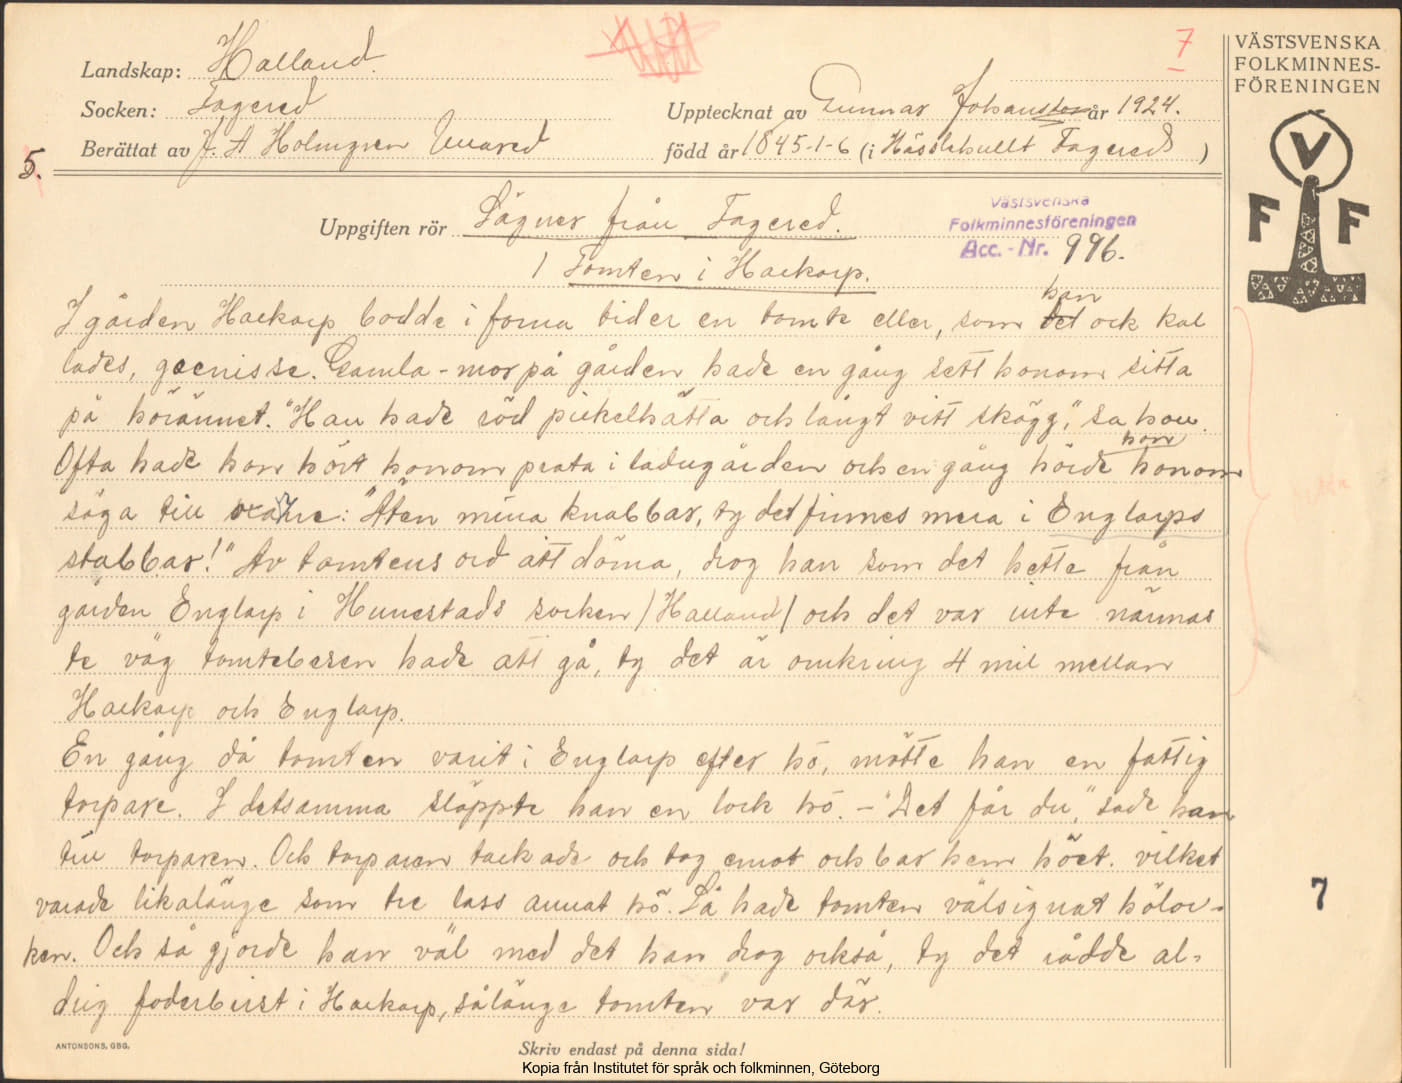 Landskap: Halland.
Socken: Fagered
Upptecknat av Gunnar Johansson år 1924.
Berättat av J. A Holmgren Ullared född år 1845-1-6 (i Hässlehullt Fagereds )
5.
7
VÄSTSVENSKA
FOLKMINNES-
FÖRENINGEN
V
F F
Uppgiften rör Sägner från Fagered.
Västsvenska
Folkminnesföreningen
Acc. - Nr. 996.
1 Tomten i Haekarp.
I gården Haekarp bodde i forna tider en tomte eller, som det han ock kal
lades, goenisse. Gamla-mor på gården hade en gång sett honom sitta
på hörännet. "Han hade röd pickelhätta och långt vitt skägg," sa hon.
Ofta hade hon hört honom prata i ladugården och en gång hörde hon honom
säga till oxarne: "Äten mina knabbar, ty det finnes mera i Englarps
stabbar!" Av tomtens ord att döma, drog han som det hette från
gården Englarp i Hunestads socken /Halland/ och det var inte närmas
te väg tomtebesen hade att gå, ty det är omkring 4 mil mellan
Haekarp och Englarp.
En gång då tomten varit i Englarp efter hö, mötte han en fattig
torpare. I detsamma släppte han en lock hö. - "Det får du," sade han
till torparen. Och torparen tackade och tog emot och bar hem höet. vilket
varade likalänge som tre lass annat hö. Så hade tomten välsignat höloc-
ken. Och så gjorde han väl med det han drog också, ty det rådde al-
drig foderbrist i Haekarp, sålänge tomten var där.
7
ANTONSONS, GBG.
Skriv endast på denna sida!
Kopia från Institutet för språk och folkminnen, Göteborg